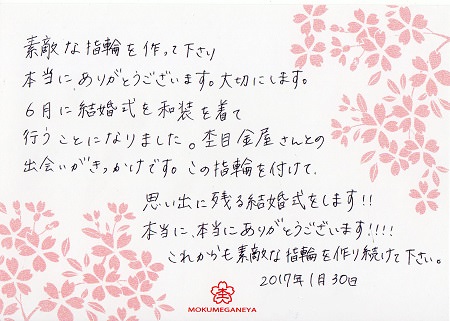 素敵な指輪を作って下さり
本当にありがとうございます。大切にします。
6月に結婚式を和装を着て
行うことになりました。杢目金屋さんとの
出会いがきっかけです。この指輪を付けて、
思い出に残る結婚式をします!!
本当に、本当にありがとうございます!!!!
これからも素敵な指輪を作り続けて下さい。
2017年1月30日
MOKUMEGANEYA